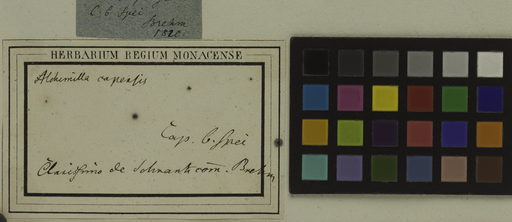 C. b. Spei
Brehm
1820.
HERBARIUM REGIUM MONACENSE
Alchimilla capensis
Cap. b. Spei
Clarissimo de Schrank com. Brehm